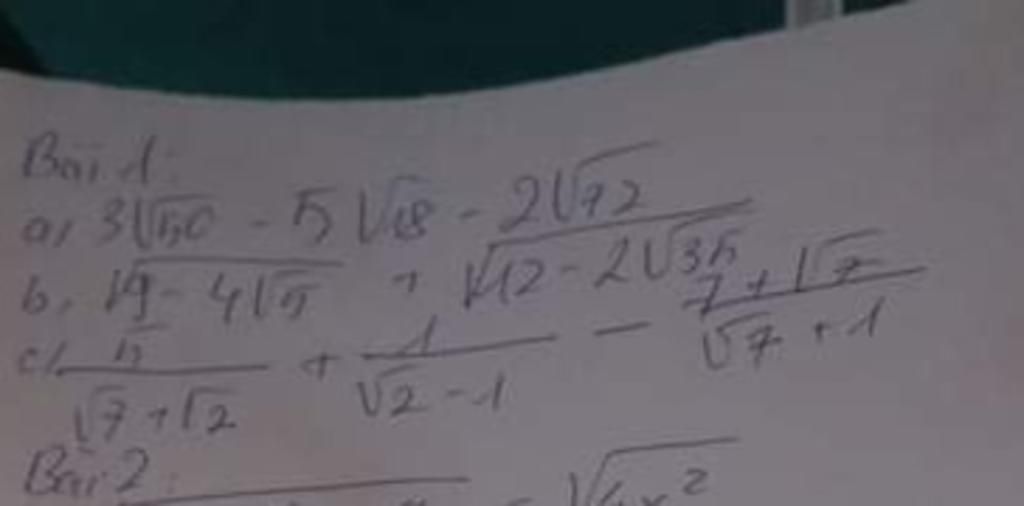 Bài 1:
a, 3√50 - 5√18 - 2√72
b, √(9 - 4√5) + √(12 - 2√35)
c, 5/(√7 + √2) + 1/(√2 - 1) - (7 + √7)/(√7 + 1)
Bài 2: